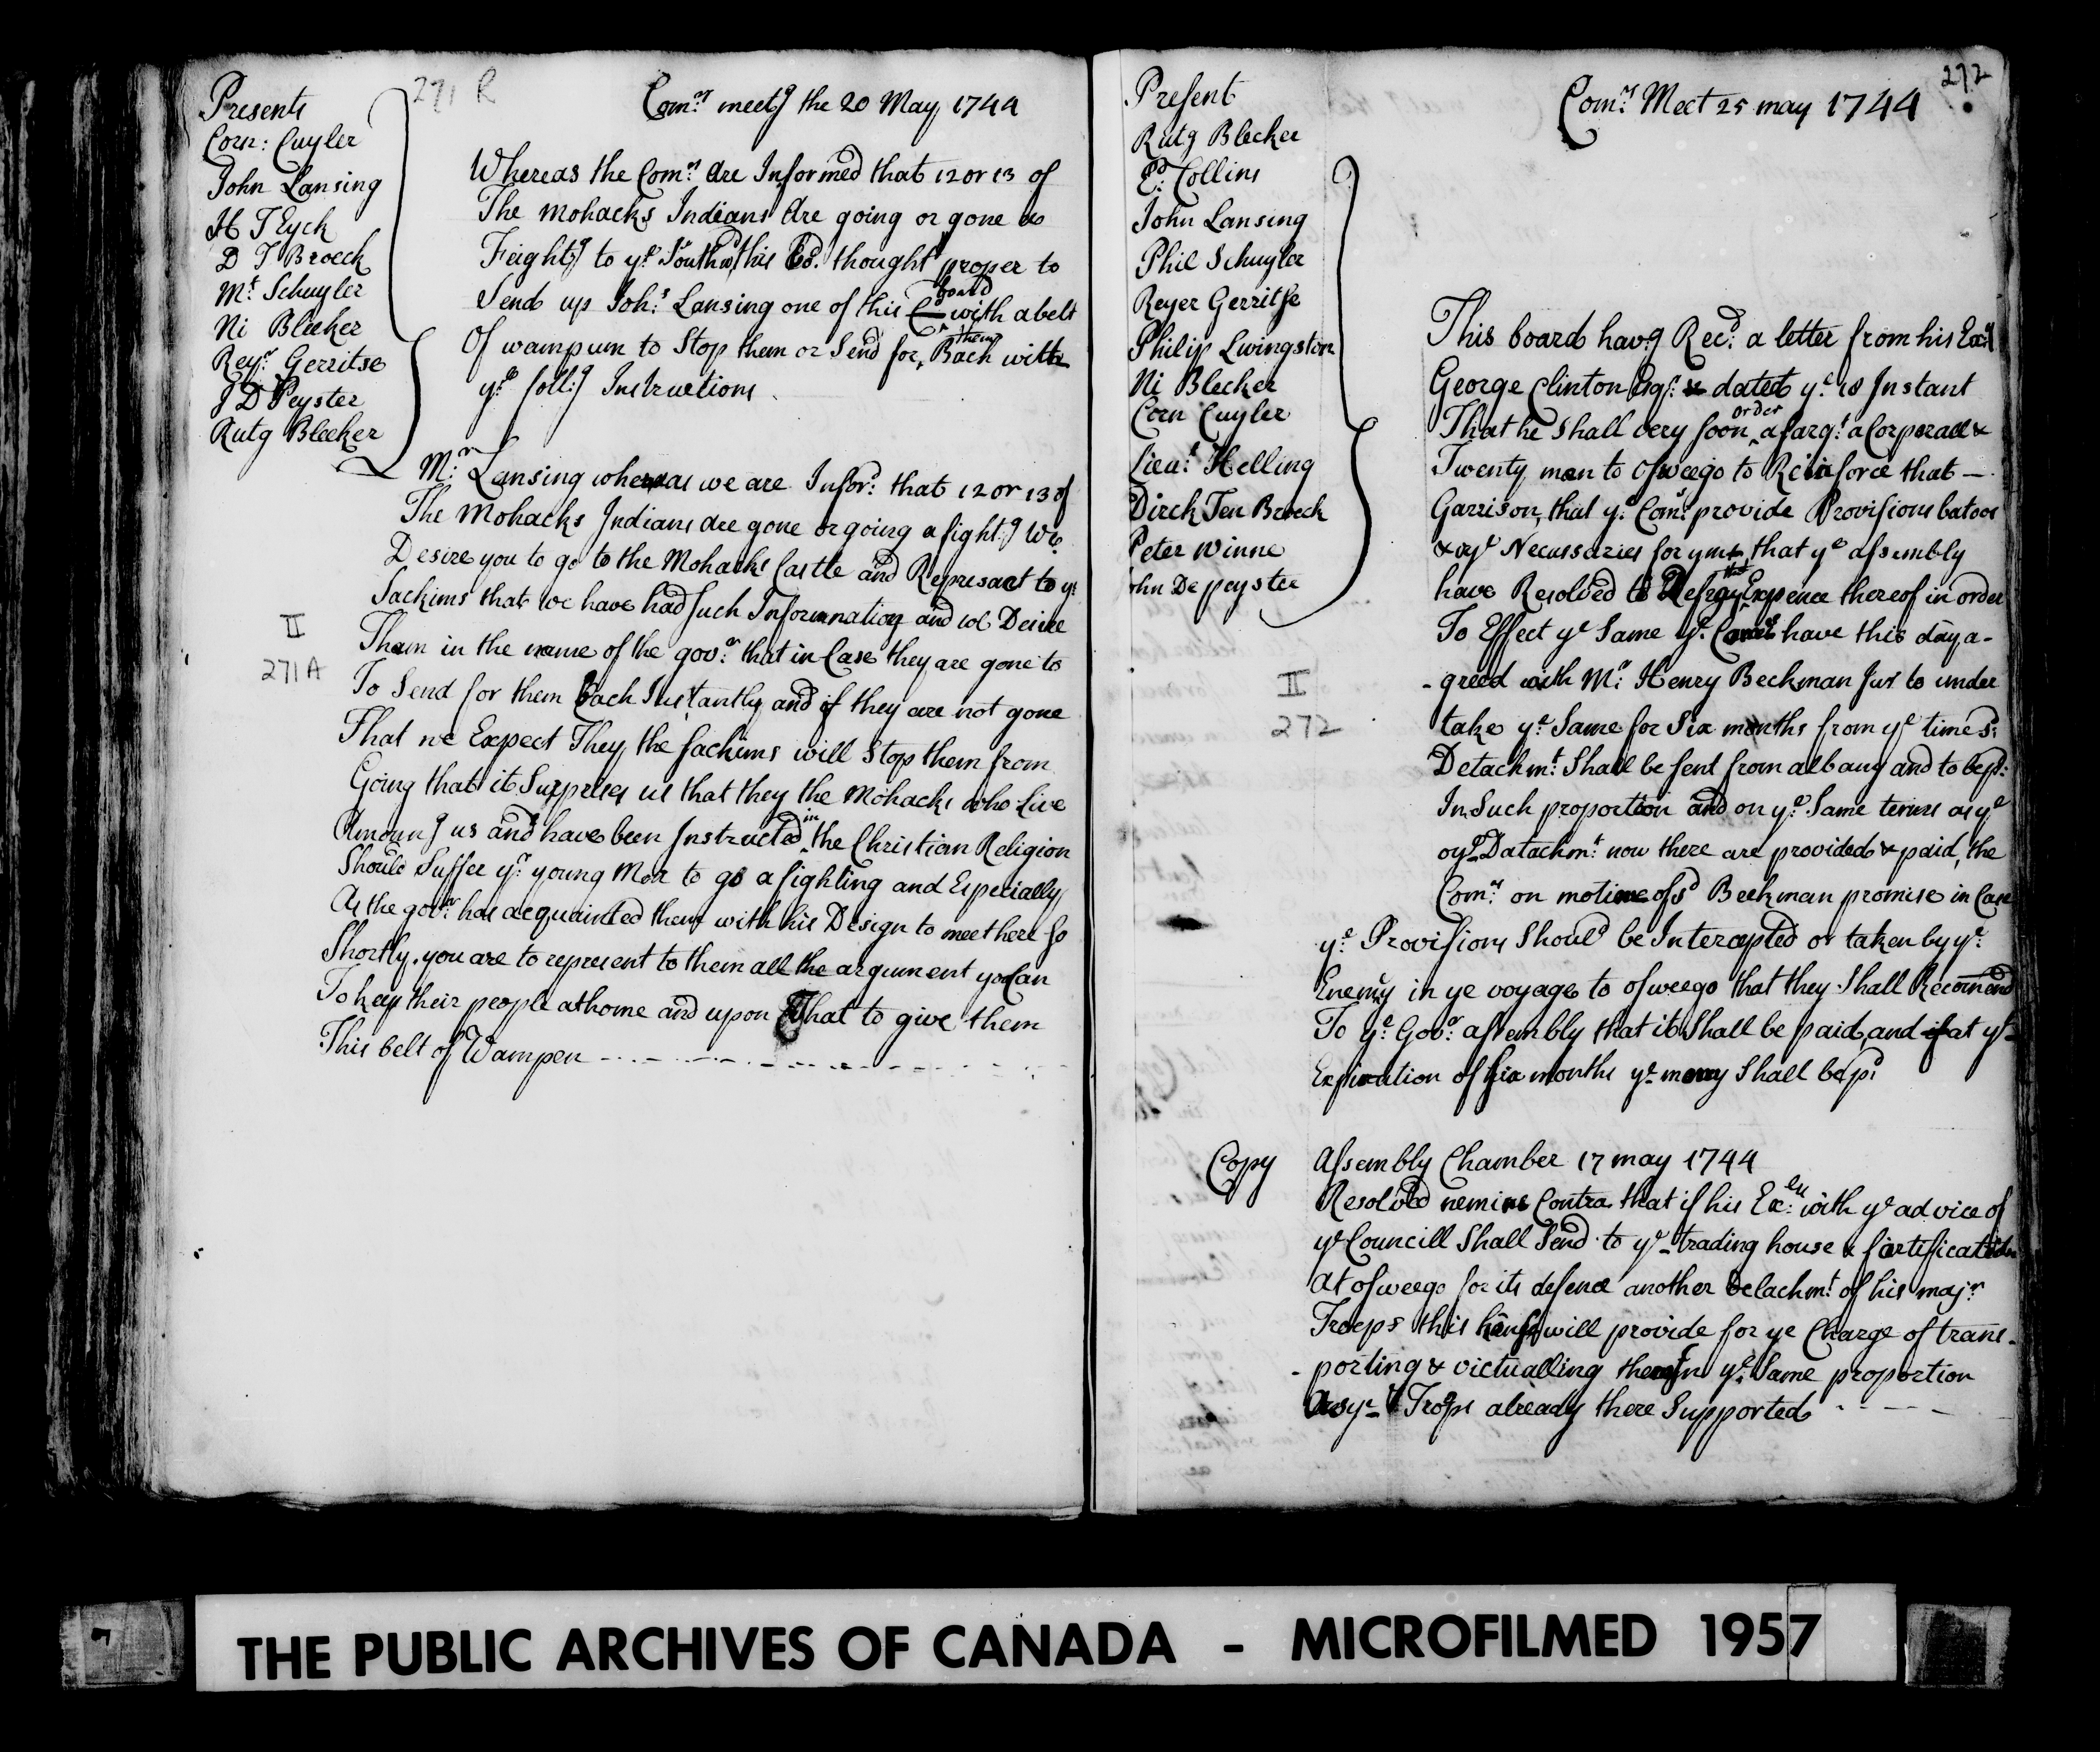 271 R
Presents
Corn: Cuyler
John Lansing
H T Eyck
D T Broeck
Mt Schuyler
Ni Bleeker
Reyr Gerritse
J D Peyster
Rutg Bleeker
Comrs meetg the 20 May 1744
Whereas the Comrs Are Informed that 12 or 13 of
The mohacks Indians Are going or gone a
Feightg to ye Southwd this Bd. thought proper to
Send up Johs Lansing one of this board with a belt
Of wampum to Stop them or Send for them Back with
ye follg Instructions
Mr Lansing whereas we are Infor: that 12 or 13 of
The Mohacks Indians Are gone or going a fightg We
Desire you to go to the Mohacks Castle and Represant to ye
Sackims that we have had such Information and we Desire
Them in the name of the govr that in Case they are gone to
To Send for them Back Instantly and if they are not gone
That we Expect They the sackims will Stop them from
Going that it Surprises us that they the Mohacks who Live
Amoung us and have been Instructed in the Christian Religion
Should Suffer yr young Men to go a fighting and Especially
As the govr has acquainted them with his Design to meet here so
Shortly. you are to represent to them all the argument yo Can
To keep their people at home and upon That to give them
This belt of Wampen
II
271 A
272
Present
Rutg Blecker
Ed Collins
John Lansing
Phil Schuyler
Reyer Gerritse
Philip Livingston
Ni Blecker
Corn Cuyler
Lieut Helling
Dirck Ten Broeck
Peter Winne
John De peyster
Comrs Meet 25 may 1744
This board havg Recd a letter from his Excy
George Clinton Esqr dated ye 18 Instant
That he shall very soon order a sargt a Corporall &
Twenty men to Osweego to Reinforce that
Garrison, that ye Comrs provide Provisions batoos
& oyr Necussaries for ym, that ye assembly
have Resolved to Defray that Expence thereof in order
To Effect ye Same ye Comrs have this day a-
-greed with Mr Henry Beekman Junr to under
take ye Same for Six months from ye time sd
Detachmt Shall be sent from albany and to be pd
In Such proportion and on ye Same terms as ye
oyr Datachmt now there are provided & paid, the
Comrs on motione of sd Beekman promise in Case
ye Provisions Should be Intercepted or taken by ye
Enemy in ye voyage to osweego that they Shall Recomend
To ye Govr assembly that it Shall be paid, and if at ye
Expiration of six months ye money Shall be pd
II
272
Copy
Assembly Chamber 17 may 1744
Resolved nemine Contra that if his Excell with ye advice of
ye Councill Shall Send to ye trading house & fortification
At osweego for its defence another Detachmt of his majrs
Troops this house will provide for ye Charge of trans-
-porting & victualling them In ye Same proportion
As ye Troops already there Supported
THE PUBLIC ARCHIVES OF CANADA - MICROFILMED 1957